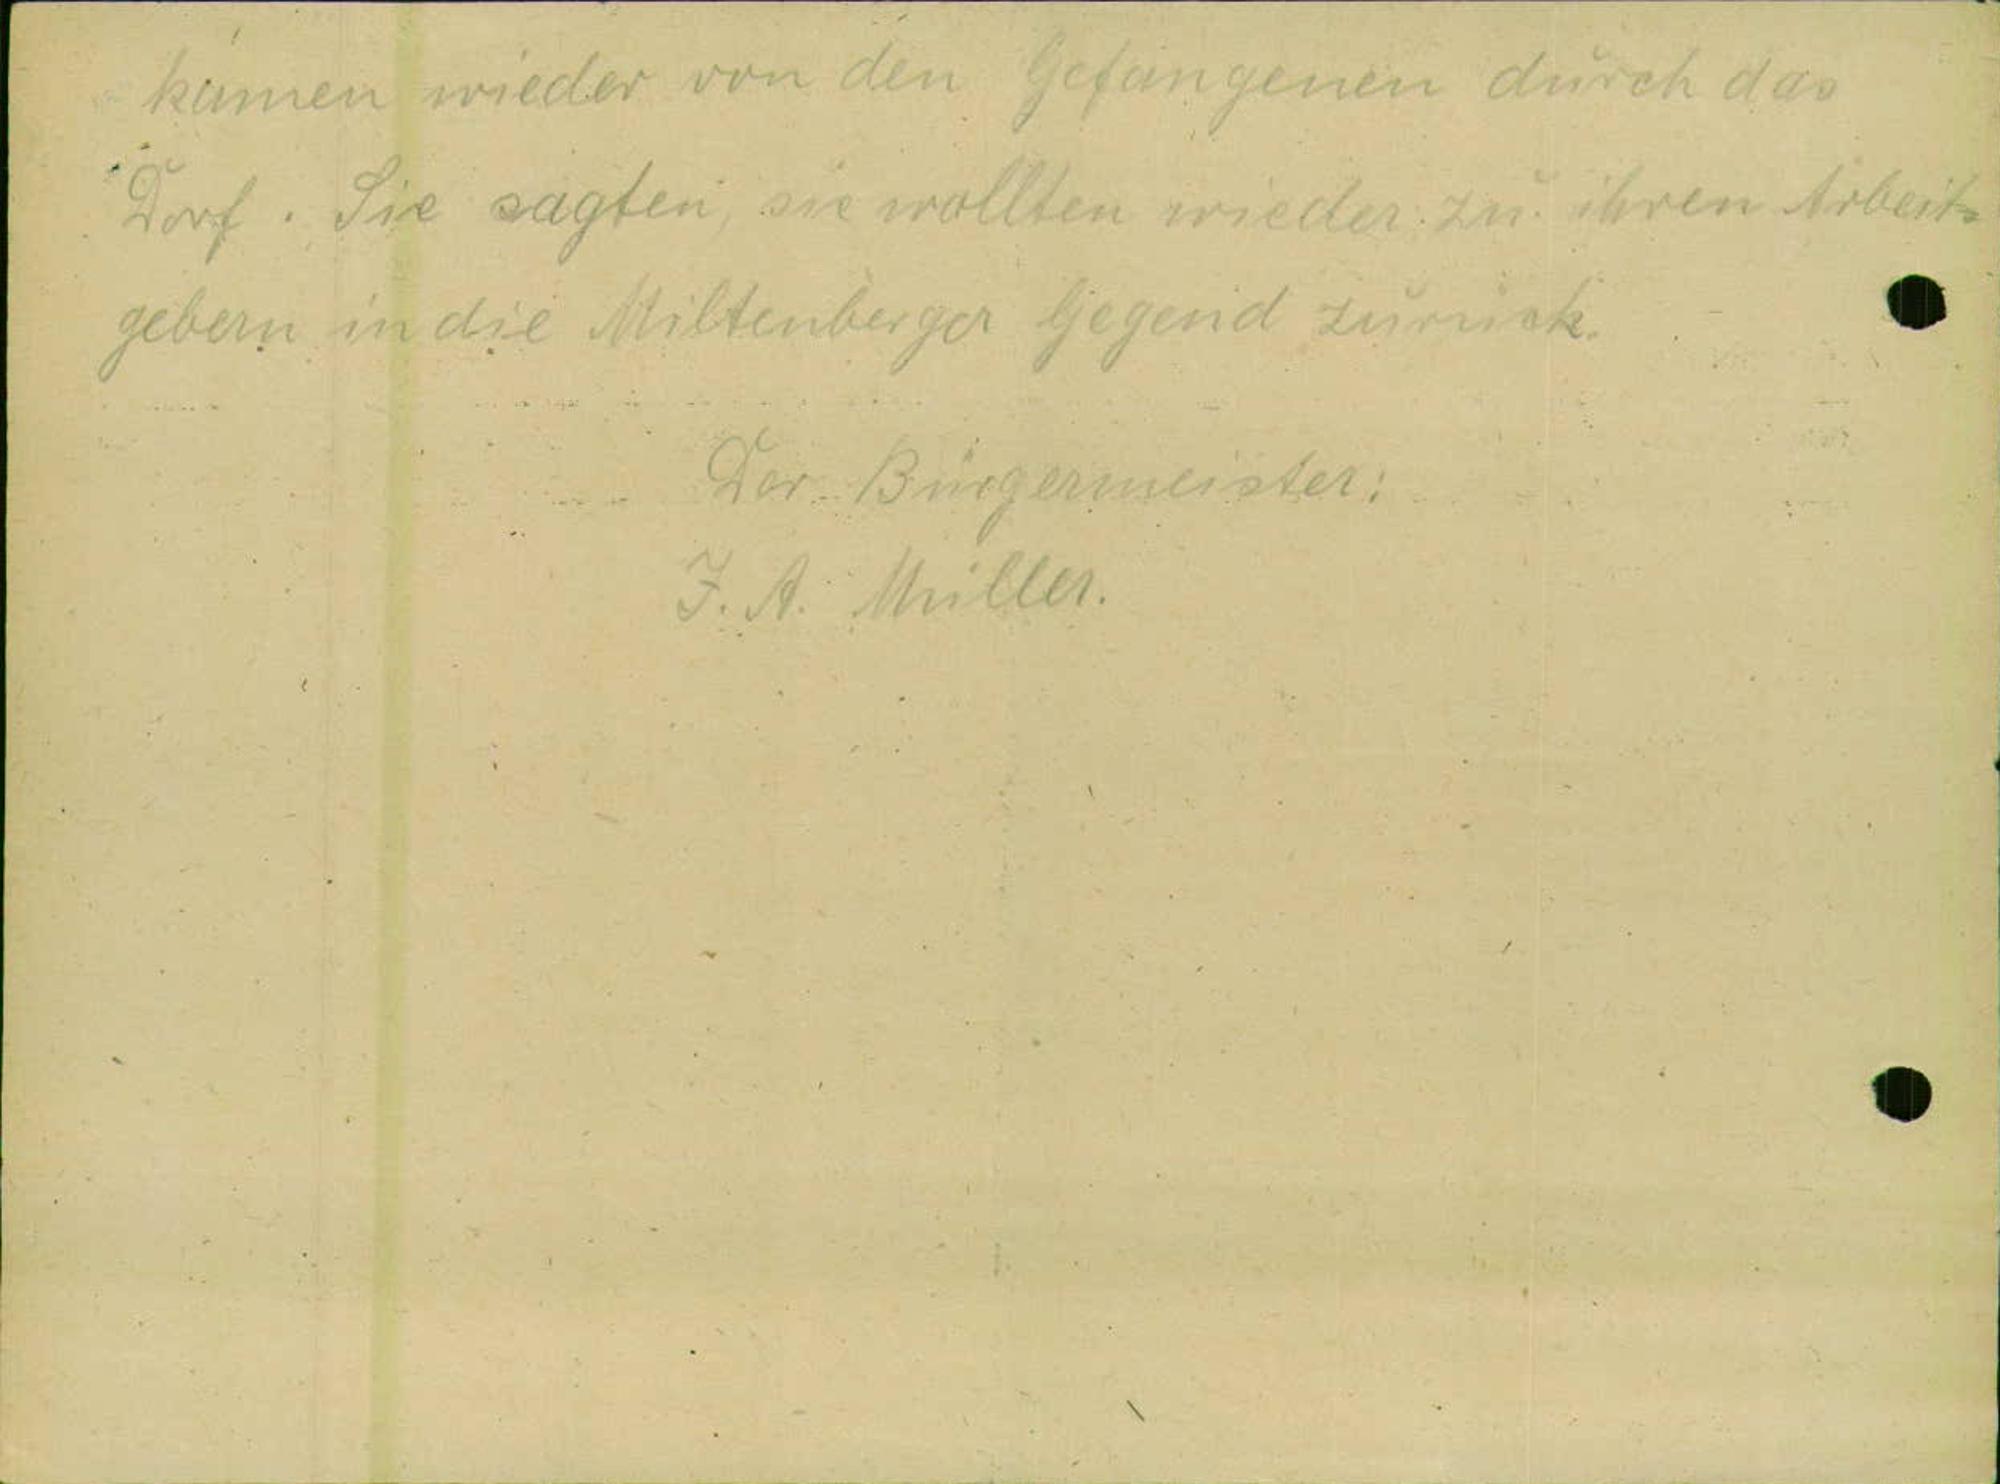 kamen wieder von den Gefangenen durch das
Dorf. Sie sagten, sie wollten wieder zu ihren Arbeit-
gebern in die Miltenberger Gegend zurück.
Der Bürgermeister:
J. A. Müller.